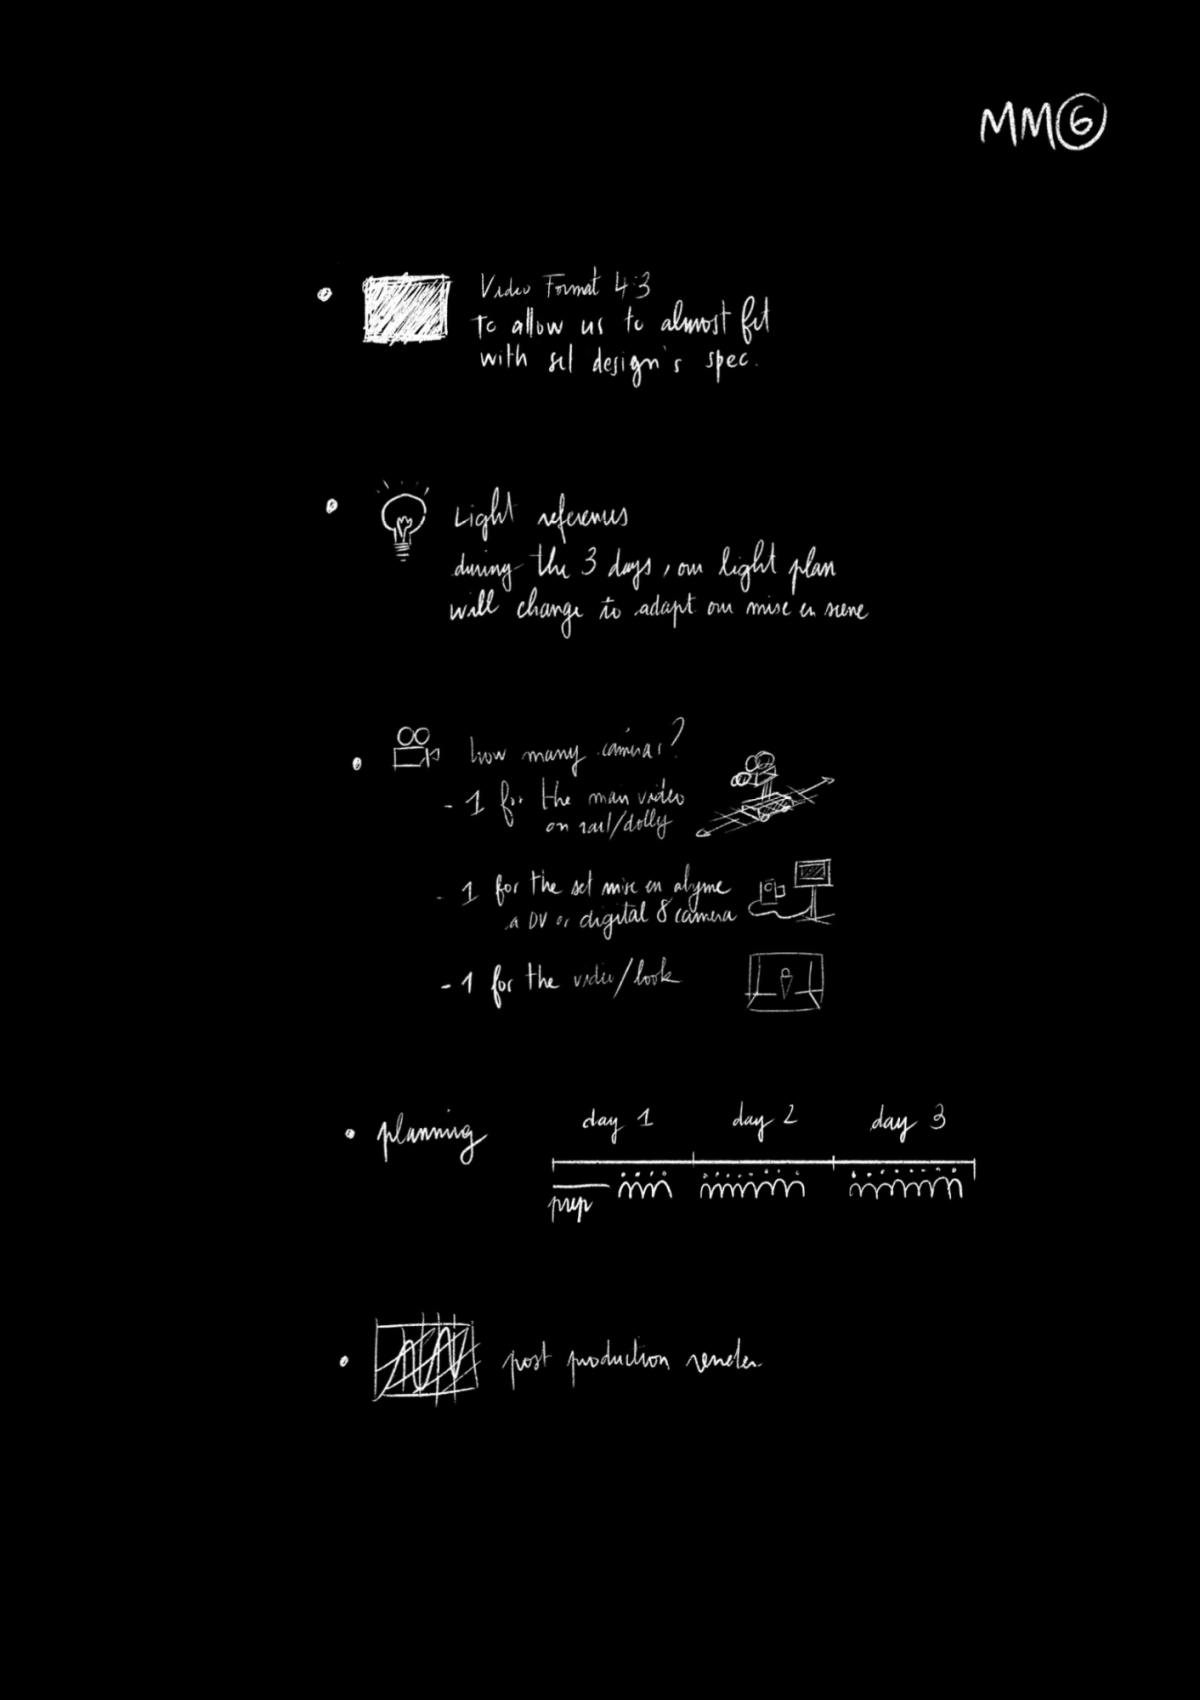 MM6
Video Format 4:3
To allow us to almost fit
with set design's spec.
Light references
during the 3 days, our light plan
will change to adapt our mise en scene
how many cameras?
- 1 for the main video
on rail/dolly
- 1 for the set mise en abyme
a DV or digital 8 camera
- 1 for the video/look
planning
day 1 day 2 day 3
prep
post production render